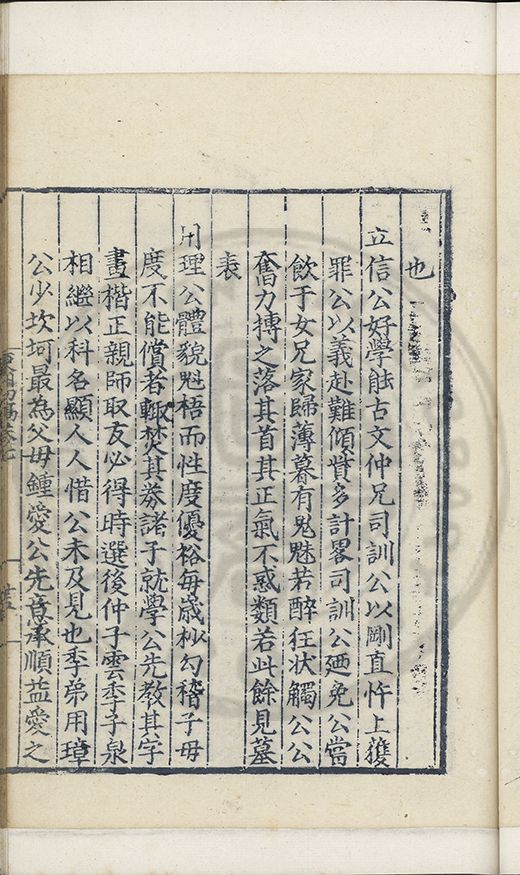 也
立信公好學能古文仲兄司訓公以剛直忤上獲
罪公以義赴難傾貲多計畧司訓公廼免公當
飲于女兄家歸薄暮有鬼魅若醉狂状觸公公
奮力搏之落其首其正氣不惑類若此餘見墓
表
用理公體貌魁梧而性度優裕每歳杪勾稽子母
度不能償者輙焚其券諸子就學公先教其字
畫楷正親師取友必得時選後仲子雲季子泉
相繼以科名顯人人惜公未及見也季弟用璋
公少坎坷最為父母鍾愛公先意承順益愛之